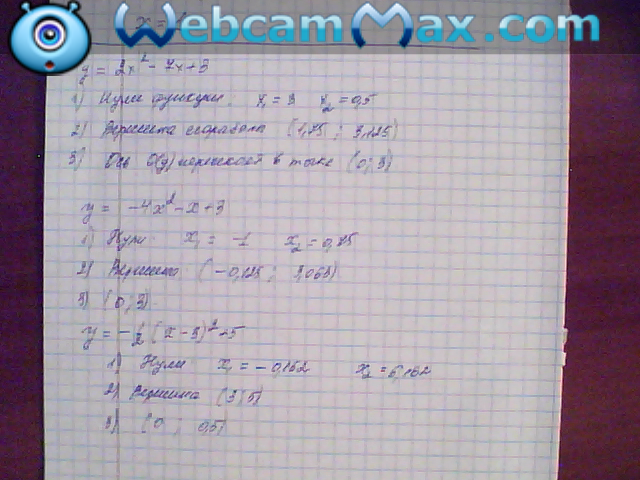 WebcamMax.com
x =
y = 2x² - 7x + 3
1) Нули функции: x₁ = 3 x₂ = 0,5
2) Вершина парабола (1,75 ; 3,125)
3) Ось О(y) пересекает в точке (0; 3)
y = -4x² - x + 3
1) Нули x₁ = -1 x₂ = 0,75
2) Вершина (-0,125 ; 3,063)
3) (0; 3)
y = -1/2 (x - 3)² + 5
1) Нули x₁ = -0,162 x₂ = 6,162
2) Вершина (3; 5)
3) (0 ; 0,5)